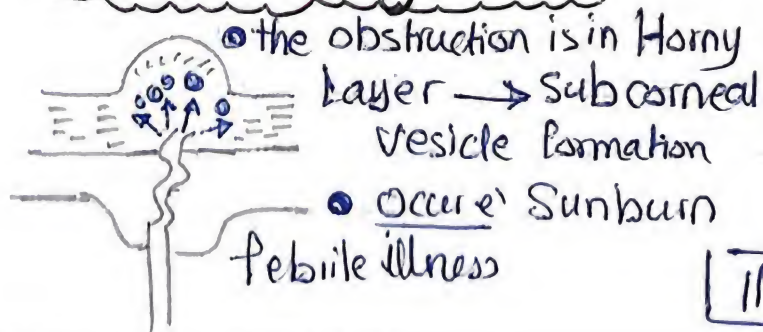 • the obstruction is in Horny
Layer → Subcorneal
vesicle formation
• Occur e` Sunburn
febrile illness